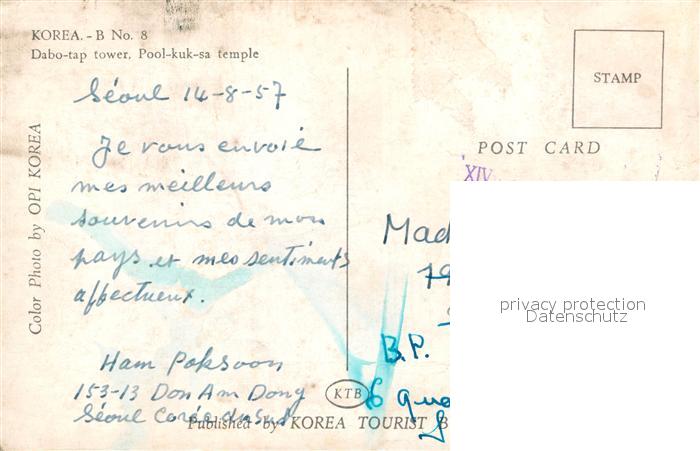 KOREA. - B No. 8
Dabo-tap tower, Pool-kuk-sa temple
Color Photo by OPI KOREA
Séoul 14-8-57
Je vous envoie
mes meilleurs
souvenirs de mon
pays et mes sentiments
affectueux.
Ham Poksoon
153-13 Don Am Dong
Séoul Corée du Sud
KTB
Published by KOREA TOURIST B
STAMP
POST CARD
XIV
Mad
B.P.
6 qua
privacy protection
Datenschutz